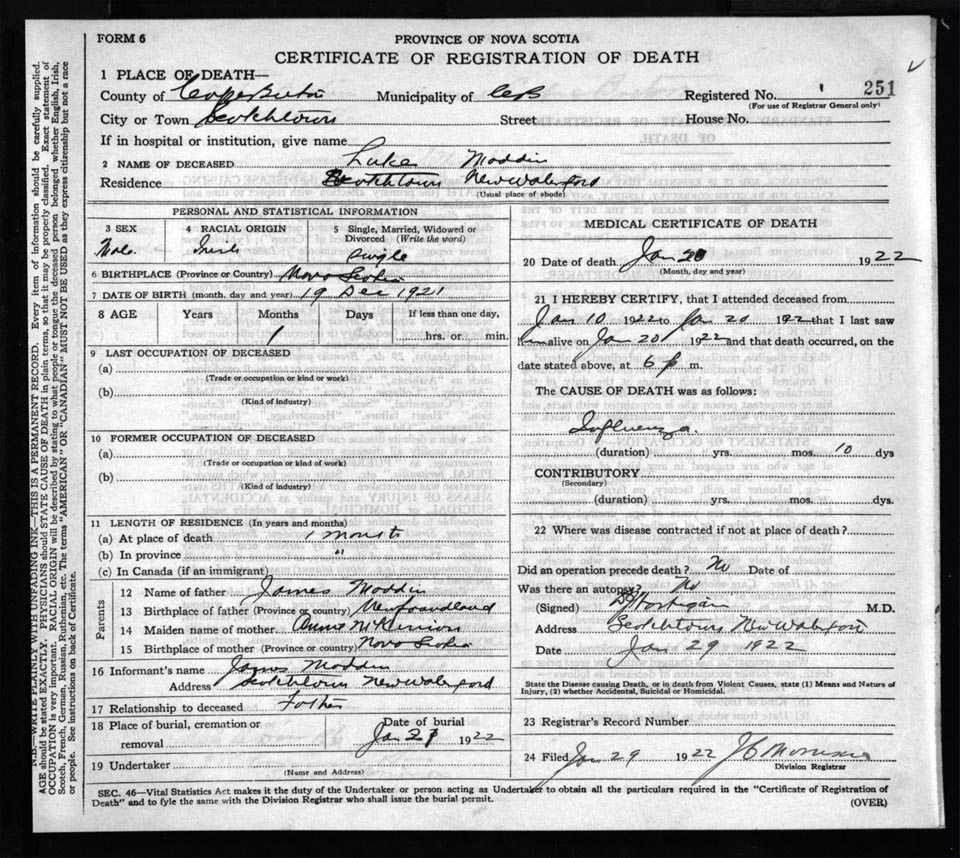 FORM 6
PROVINCE OF NOVA SCOTIA
CERTIFICATE OF REGISTRATION OF DEATH
251
1 PLACE OF DEATH—
County of Cape Breton Municipality of CB Registered No.
(For use of Registrar General only)
City or Town Scotchtown Street House No.
If in hospital or institution, give name
2 NAME OF DECEASED Luke Moddin
Residence Scotchtown New Waterford
(Usual place of abode)
PERSONAL AND STATISTICAL INFORMATION
3 SEX 4 RACIAL ORIGIN 5 Single, Married, Widowed or Divorced (Write the word)
Male Irish Single
6 BIRTHPLACE (Province or Country) Nova Scotia
7 DATE OF BIRTH (month, day and year) 19 Dec 1921
8 AGE Years Months Days If less than one day,
1 hrs. or min.
9 LAST OCCUPATION OF DECEASED
(a)
(Trade or occupation or kind or work)
(b)
(Kind of industry)
10 FORMER OCCUPATION OF DECEASED
(a)
(Trade or occupation or kind of work)
(b)
(Kind of industry)
11 LENGTH OF RESIDENCE (In years and months)
(a) At place of death 1 month
(b) In province "
(c) In Canada (if an immigrant)
Parents
12 Name of father James Moddin
13 Birthplace of father (Province or country) Newfoundland
14 Maiden name of mother Annie McKinnon
15 Birthplace of mother (Province or country) Nova Scotia
16 Informant's name James Moddin
Address Scotchtown New Waterford
17 Relationship to deceased Father
18 Place of burial, cremation or removal Date of burial
Jan 21 1922
19 Undertaker
(Name and Address)
MEDICAL CERTIFICATE OF DEATH
20 Date of death Jan 20 1922
(Month, day and year)
21 I HEREBY CERTIFY, that I attended deceased from
Jan 10 1922 to Jan 20 1922 that I last saw
him alive on Jan 20 1922 and that death occurred, on the
date stated above, at 6 p m.
The CAUSE OF DEATH was as follows:
Influenza
(duration) yrs. mos. 10 dys
CONTRIBUTORY
(Secondary)
(duration) yrs. mos. dys.
22 Where was disease contracted if not at place of death?
Did an operation precede death? No Date of
Was there an autopsy? No
(Signed) Hartigan M.D.
Address Scotchtown New Waterford
Date Jan 29 1922
State the Disease causing Death, or in death from Violent Causes, state (1) Means and Nature of
Injury, (2) whether Accidental, Suicidal or Homicidal.
23 Registrar's Record Number
24 Filed Jan 29 1922 Morrison
Division Registrar
SEC. 46—Vital Statistics Act makes it the duty of the Undertaker or person acting as Undertaker to obtain all the particulars required in the "Certificate of Registration of
Death" and to fyle the same with the Division Registrar who shall issue the burial permit.
(OVER)
N.B.—WRITE PLAINLY WITH UNFADING INK—THIS IS A PERMANENT RECORD. Every item of information should be carefully supplied.
AGE should be stated EXACTLY. PHYSICIANS should STATE CAUSE OF DEATH in plain terms, so that it may be properly classified. Exact statement of
OCCUPATION is very important. RACIAL ORIGIN will be described by stating to what people or tongue the deceased person belonged whether English, Irish,
Scotch, French, German, Russian, Ruthenian, etc. The terms "AMERICAN" OR "CANADIAN" MUST NOT BE USED as they express citizenship but not a race
or people. See instructions on back of Certificate.